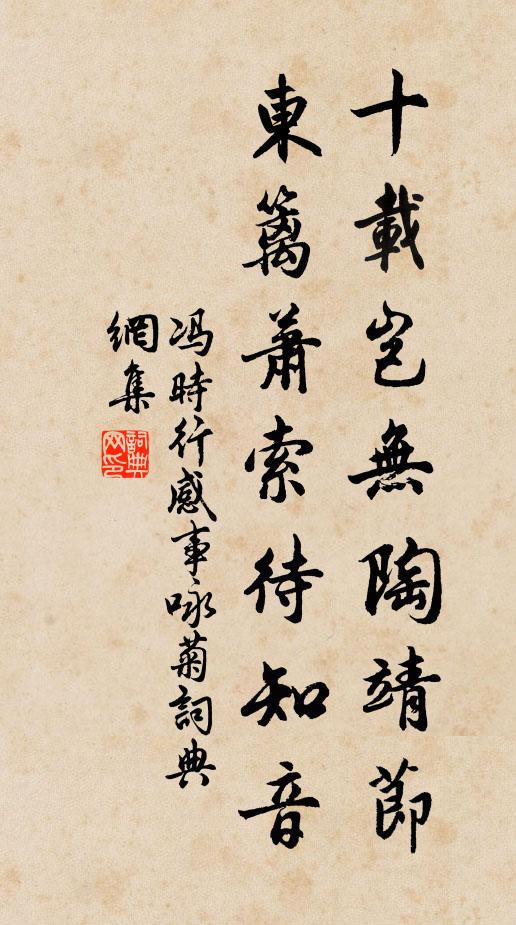 十載豈無陶靖節
東籬蕭索待知音
馮時行感事咏菊詞典
網集
詞典
网印